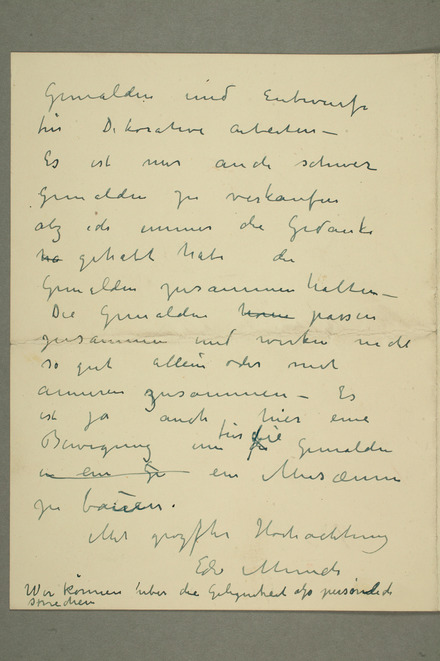 Gemälden und Entwurfe
für Dekorative arbeiten –
Es ist mir auch schwer
Gemälden zu verkaufen
als ich immer die Gedanke
ha gehabt habe die
Gemälden zusammen halten –
Die Gemälden passen
zusammen und wirken nicht
so gut allein oder mit
anneren zusammen – Es
ist ja auch hier eine
Bewegung um für die Gemälden
in ein ein Musæum
zu bauen.
Mit größter Hochachtung
Edv. Munch
Wir können über die Gelegenheit also persönlich
sprechen